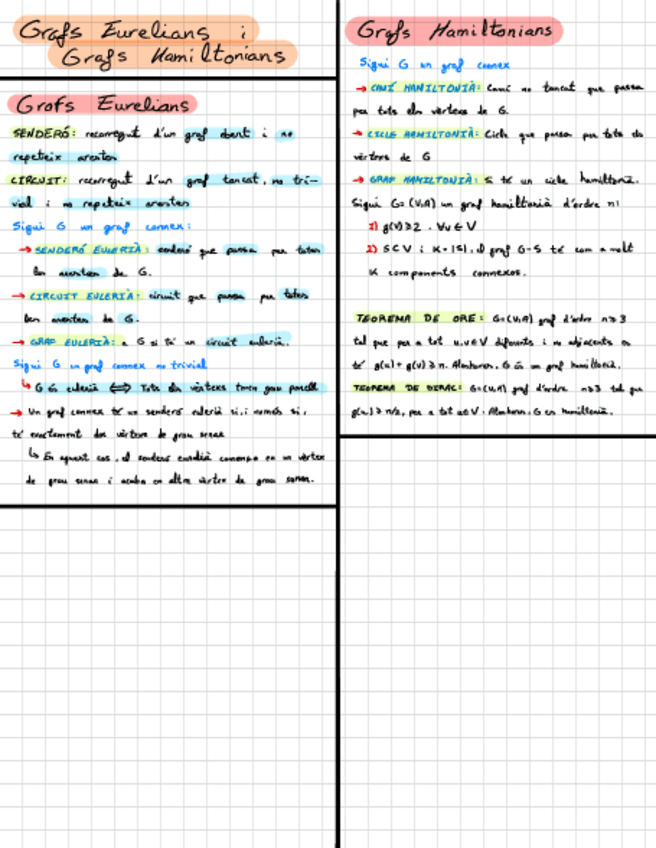 Grafs Eurelians i
Grafs Hamiltonians
Grafs Eurelians
SENDERÓ: recorregut d'un graf obert i no
repeteix arestes
CIRCUIT: recorregut d'un graf tancat, no tri-
vial i no repeteix arestes
Sigui G un graf connex:
→ SENDERÓ EULERIÀ: senderó que passa per totes
les arestes de G.
→ CIRCUIT EULERIÀ: circuit que passa per totes
les arestes de G.
→ GRAF EULERIÀ: a G si té un circuit eulerià.
Sigui G un graf connex no trivial
↳ G és eulerià ⟺ Tots els vèrtexs tenen grau parell
→ Un graf connex té un senderó eulerià si, i només si,
té exactament dos vèrtexs de grau senar
↳ En aquest cas, el senderó eulerià comença en un vèrtex
de grau senar i acaba en altre vèrtex de grau senar.
Grafs Hamiltonians
Sigui G un graf connex
→ CAMÍ HAMILTONIÀ: Camí no tancat que passa
per tots els vèrtexs de G.
→ CICLE HAMILTONIÀ: Cicle que passa per tots els
vèrtexs de G
→ GRAF HAMILTONIÀ: si té un cicle hamiltonià.
Sigui G=(V,A) un graf hamiltonià d'ordre n:
1) g(v)≥2, ∀v∈V
2) S⊂V i K=|S|, el graf G-S té com a molt
K components connexos.
TEOREMA DE ORE: G=(V,A) graf d'ordre n≥3
tal que per a tot u,v∈V diferents i no adjacents es
té g(u)+g(v)≥n. Aleshores, G és un graf hamiltonià.
TEOREMA DE DIRAC: G=(V,A) graf d'ordre n≥3 tal que
g(u)≥n/2, per a tot u∈V. Aleshores, G es hamiltonià.